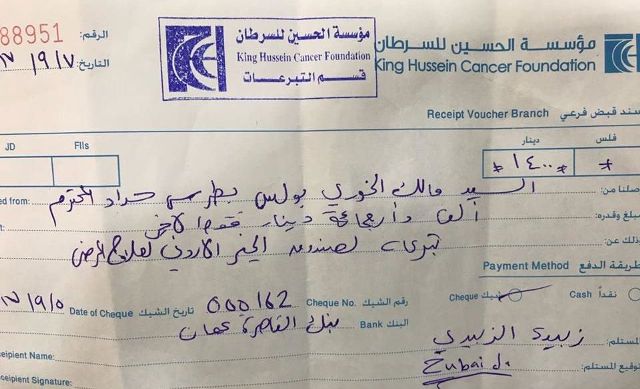 88951 الرقم:
٧ /٩/٧ التاريخ:
مؤسسة الحسين للسرطان
King Hussein Cancer Foundation
قسم التبرعات
مؤسسة الحسين للسرطان
King Hussein Cancer Foundation
Receipt Voucher Branch سند قبض فرعي
JD Fils دينار فلس
* ١٤٠٠ * *
ed from: السيد مالك الخوري بولس بطرس حداد المحترم صلنا من:
ألف وأربعمائة دينار فقط لا غير مبلغ وقدره:
تبرعاً لصندوق الخير الأردني لعلاج المرضى وذلك عن:
Payment Method طريقة الدفع
Cheque شيك Cash نقداً
٧ /٩/٥ Date of Cheque تاريخ الشيك 000162 Cheque No. رقم الشيك
بنك القاهرة عمان Bank البنك
ecipient Name: زبيدي الزبيدي المستلم:
ecipient Signature: Zubaidi توقيع المستلم: